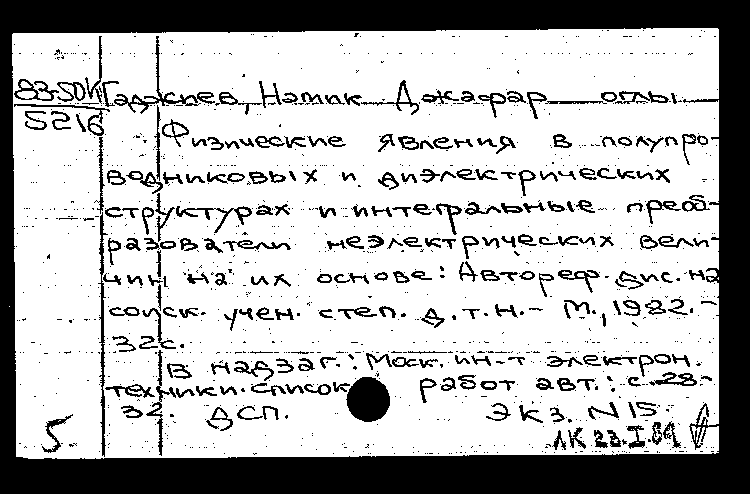 83-50К Гаджиев, Намик Джафар оглы
5216
Физические явления в полупро-
водниковых и диэлектрических
структурах и интегральные преоб-
разователи неэлектрических вели-
чин на их основе: Автореф. дис. на
соиск. учен. степ. д.т.н. - М., 1982. -
32с.
В надзаг.: Моск. ин-т электрон.
техники. список работ авт.: с. 28-
32. ДСП. Экз. N 15
5. ЛК 23.I.84